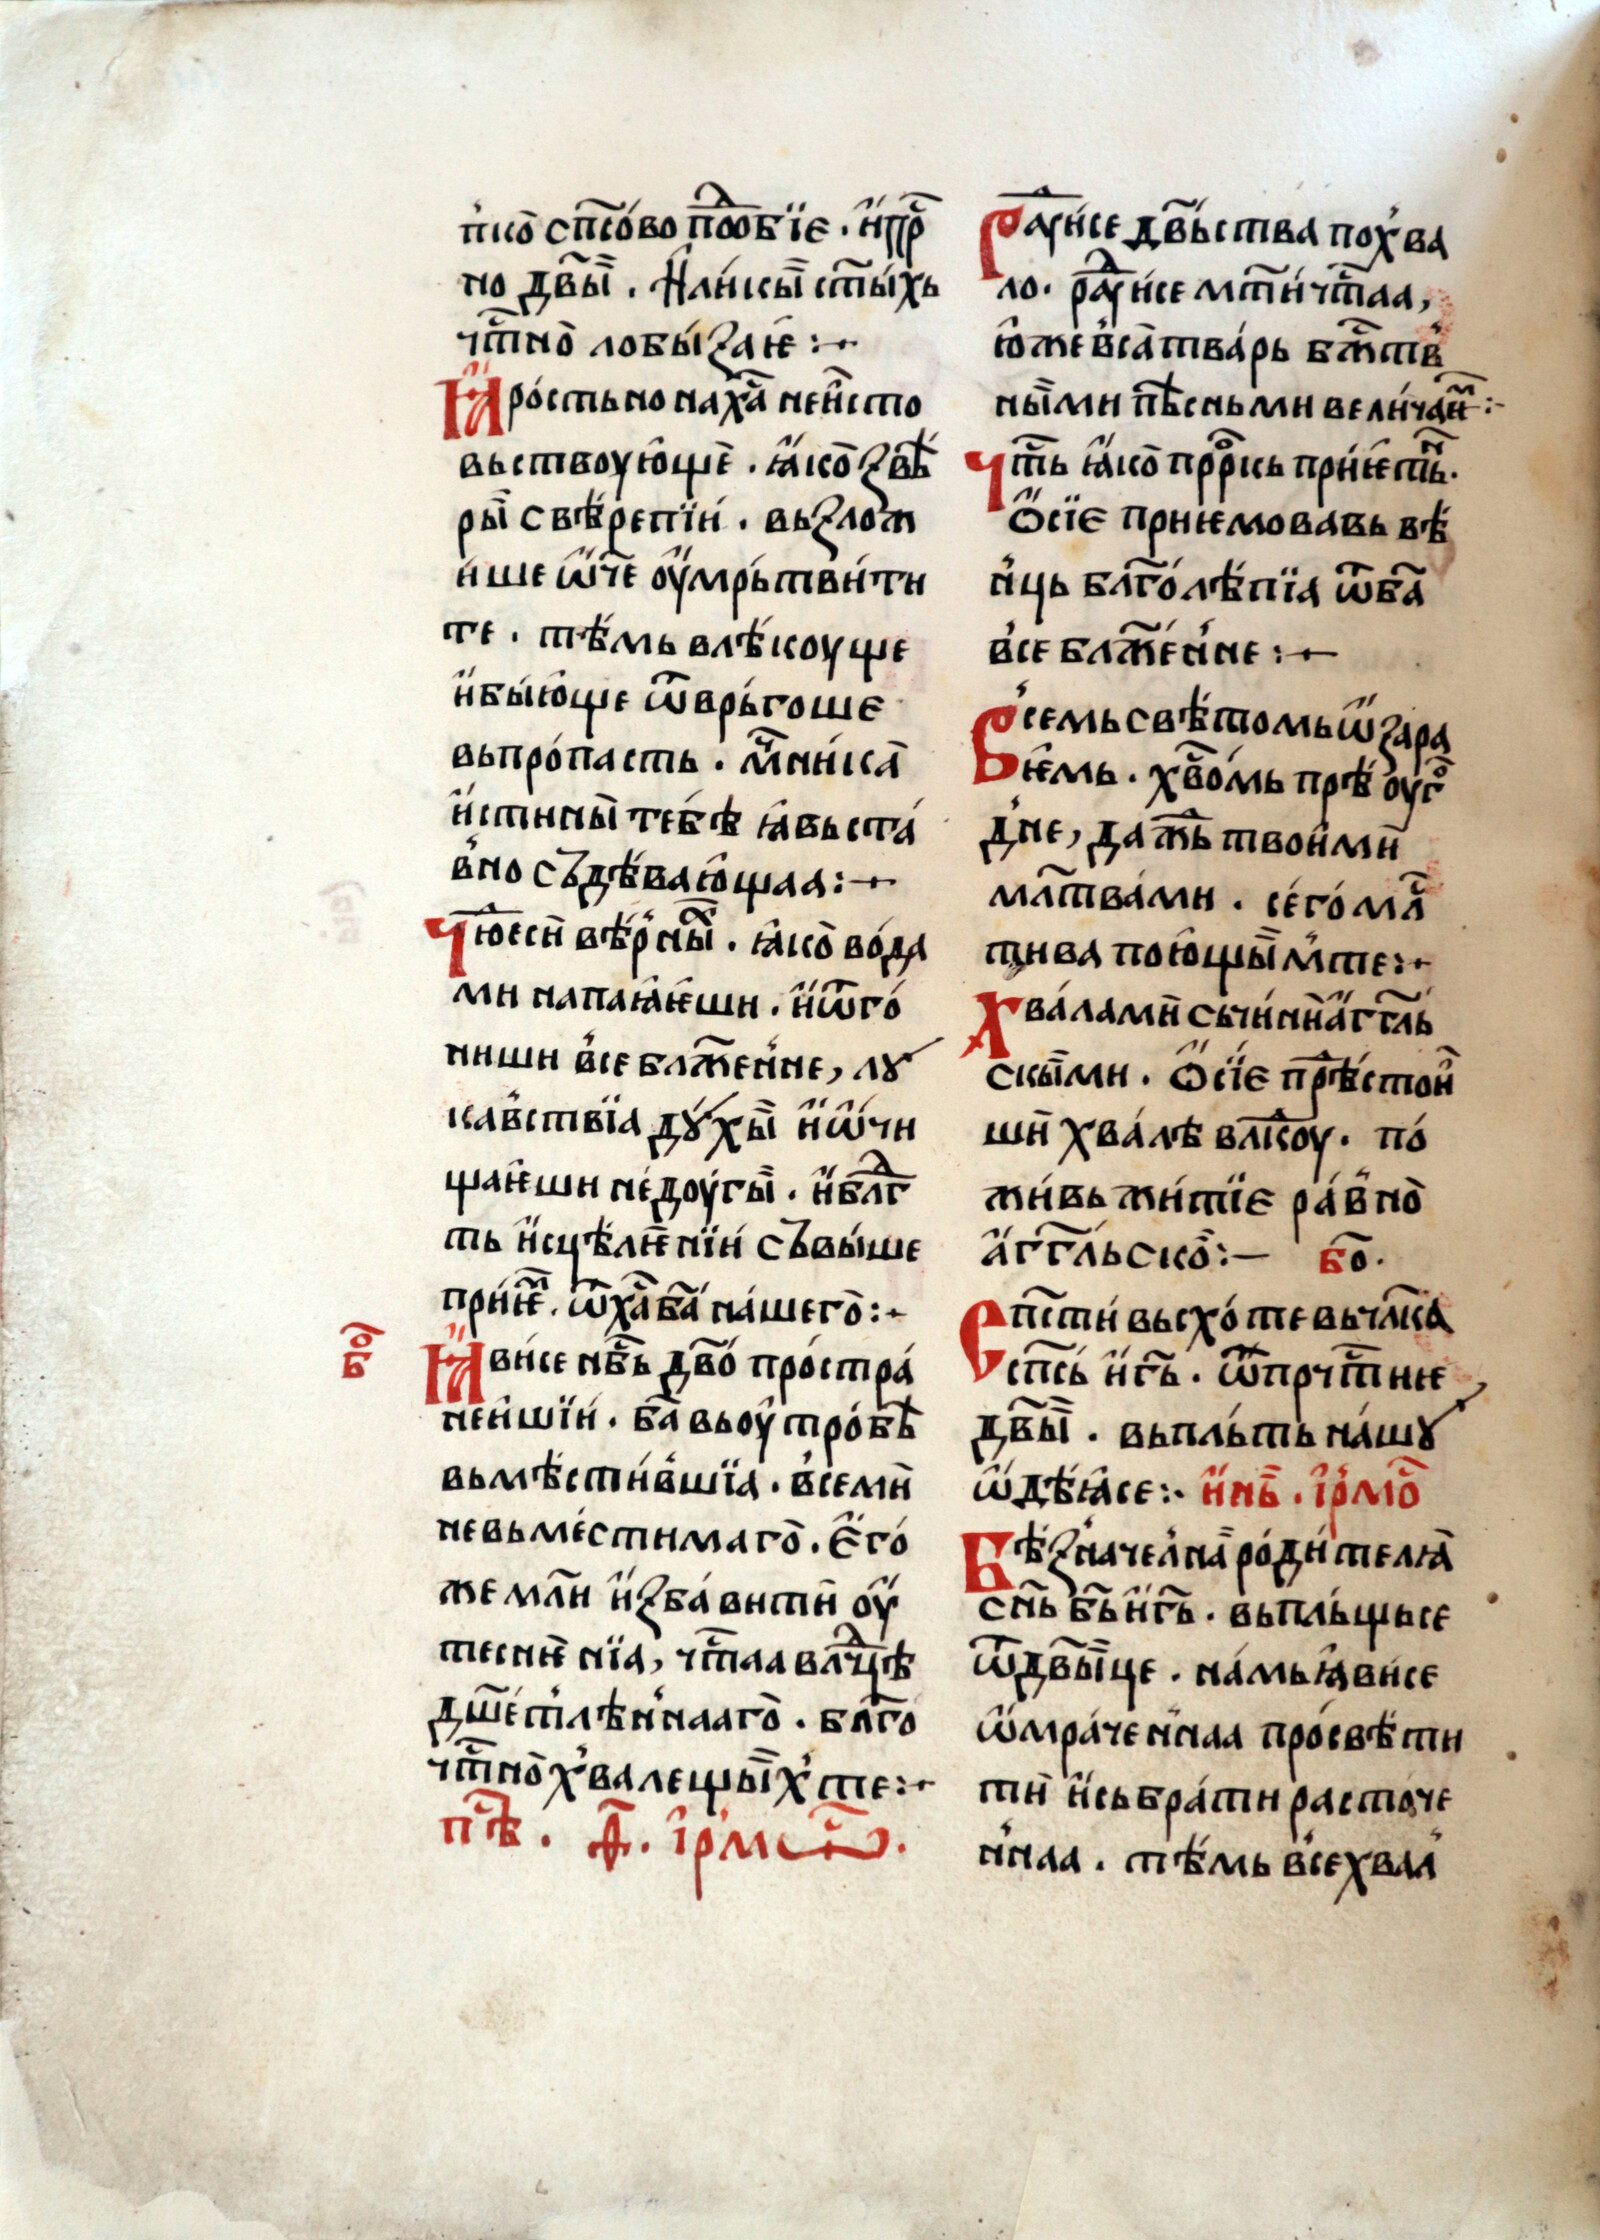 п҆ко̑ сп҃со́во по̑обїе . и҆ пр҃
но дв҃ы . и҆ ли́кы ст҃ы́хь
чт҃но̑ лобы́ꙁаѥ :~
Ꙗ҆ рость но на ха̑ неи҆сто
вьствоую҆щѐ . ꙗ҆ко̑ ꙁвѣ́
ры̑ свѣ́репїи . вьꙁлож
и́ше ѡ҆ч҃е оу҆мрь́тви́ти
те . тѣ́мь влѣ́коуще
и҆ бы́ю҆ще ѿврь́гоше
вь про́пасть . мч҃ни́ка̑
и҆стины̑ тебѣ̀ ꙗ҆вь ста́
в҆но съдѣ́ваю҆щаа :~
Чю҃еси̑ вѣ́р҆ны̑ . ꙗ҆ко̑ во́да
ми напаꙗ҆ѥши . и҆ ѿго́
ниши в҆се блж҃ен҆не , лꙋ
кав҆ствїа дꙋ́хы̑ и҆ ѡ҆чи
щаѥ҆ши не́доу́гы̑ . и҆ бл҃г
ть и҆сцѣ́лѥнїи́ съвы́ше
при́ѥ . ѿ ха̑ ба҃ на́шего̑ :~
бо҃
Ꙗ҆ ви́се нб҃ь дв҃о́ про́стра́
нен҆шїи́ . ба҃ вь оу҆тро́бѣ̀
вьмѣ́сти́в҆шїа . в҆семи̑
невьмѐстимаго̑ . ѥ҆го́
же мл҃и и҆ꙁба́вити̑ оу҆
теснѥнїа , чт҃аа влч҃цѣ
дш҃ет҆лѣ́н҆нааго̑ . бл҃го
чт҃но̑ х҆валещы́х҆ те :~
пѣ̑ . ѳ҃ . і҆рмѡ̑ .
Ра̑и́се дв҃ь́ства пох҆ва
ло . ра̑и́се мт҃и чт҃аа ,
ю҆же в҆са̑ тва́рь бж҃тв҆
ны́ми пѣ́сньми вели́чаѥ̑ :~
Чт҃ь ꙗ҆ко̑ прр҃кь прииѥ ть̑ .
Ѡ҆сїе приѥмовавь вѣ́
н҆ць бл҃го́лѣ́пїа ѿ ба҃
в҆се блж҃е́н҆не :~
В҆семь свѣ́томь ѡ҆ꙁара
ѥ҆мь . хв҃о́мь прѣ́ оуго̑
дне , даж҃ь твои҆ми̑
мл҃тва́ми . се́го́ мл҃
тива пою҆щы́м҆ те :~
Хва́лами̑ сьчи́ни̑ а҆гг҃ль́
скы́ми . Ѡ҆сїе прѣ́стои҆
ши̑ хва́лѣ вл҃коу . по́
жи́вь жи́тїе ра́в҆но̑
а҆гг҃льско̑ :— бо҃ .
Сп҃сти́ вьсхо́те вь чл҃ка
сп҃сь́ и҆ гь҃ . ѿ прчт҃иѥ
дв҃ы̑ . вьпль́ть на́шꙋ
ѡ҆дѣ́ꙗ҆се :· и҆ нь҃ . і҆рмо̑
Беꙁначел҆на̑ ро́ди́телꙗ̑
сн҃ь бь҃ и҆ гь҃ . вьпль́щьсе
ѿ дв҃ы́це . на́мь ꙗ҆ви́се
ѡ҆мра́чен҆наа про́свѣ́ти
ти̑ и҆ сьбра́ти расто́че
н҆наа . тѣ́мь в҆се хвал҆